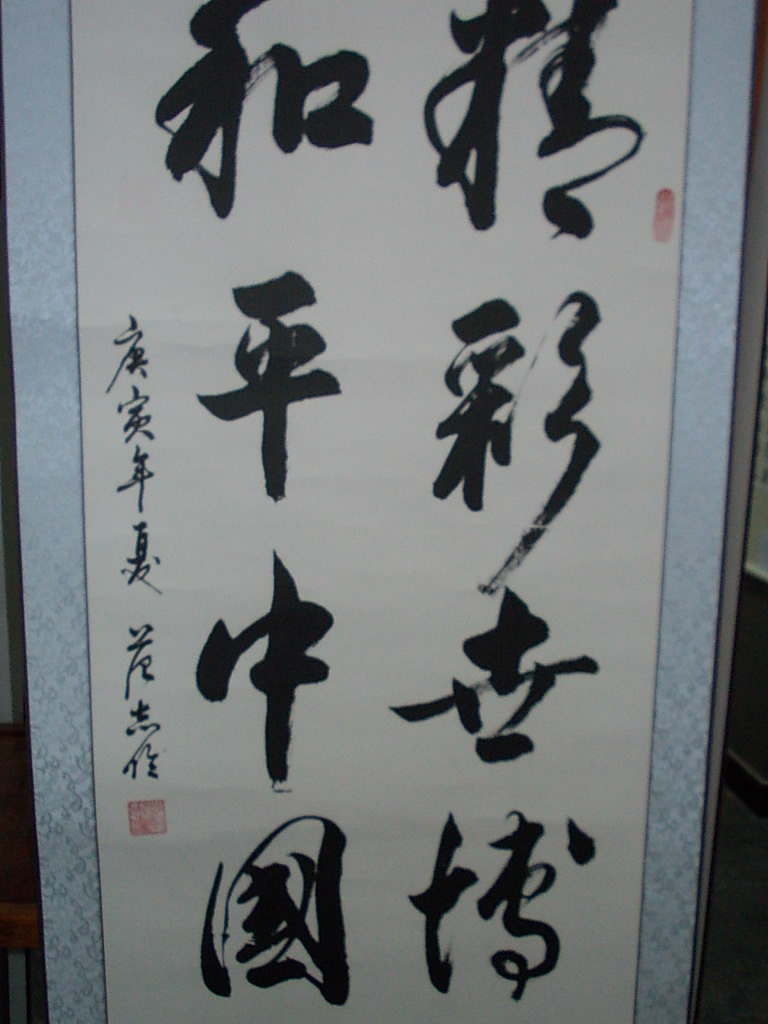 精彩世博
和平中國
庚寅年夏 范志伦